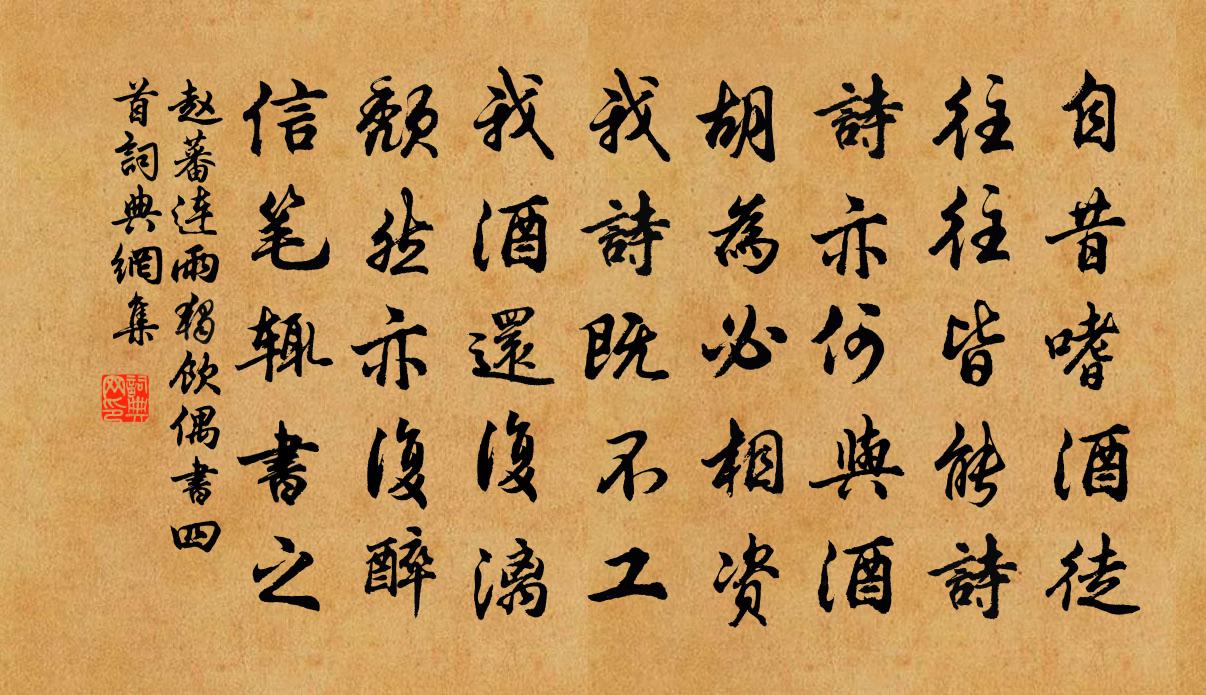 自昔嗜酒徒
往往皆能詩
詩亦何與酒
胡為必相資
我詩既不工
我酒還復漓
頹然亦復醉
信笔辄書之
赵蕃連雨獨飲偶書四
首詞典網集
詞典网印